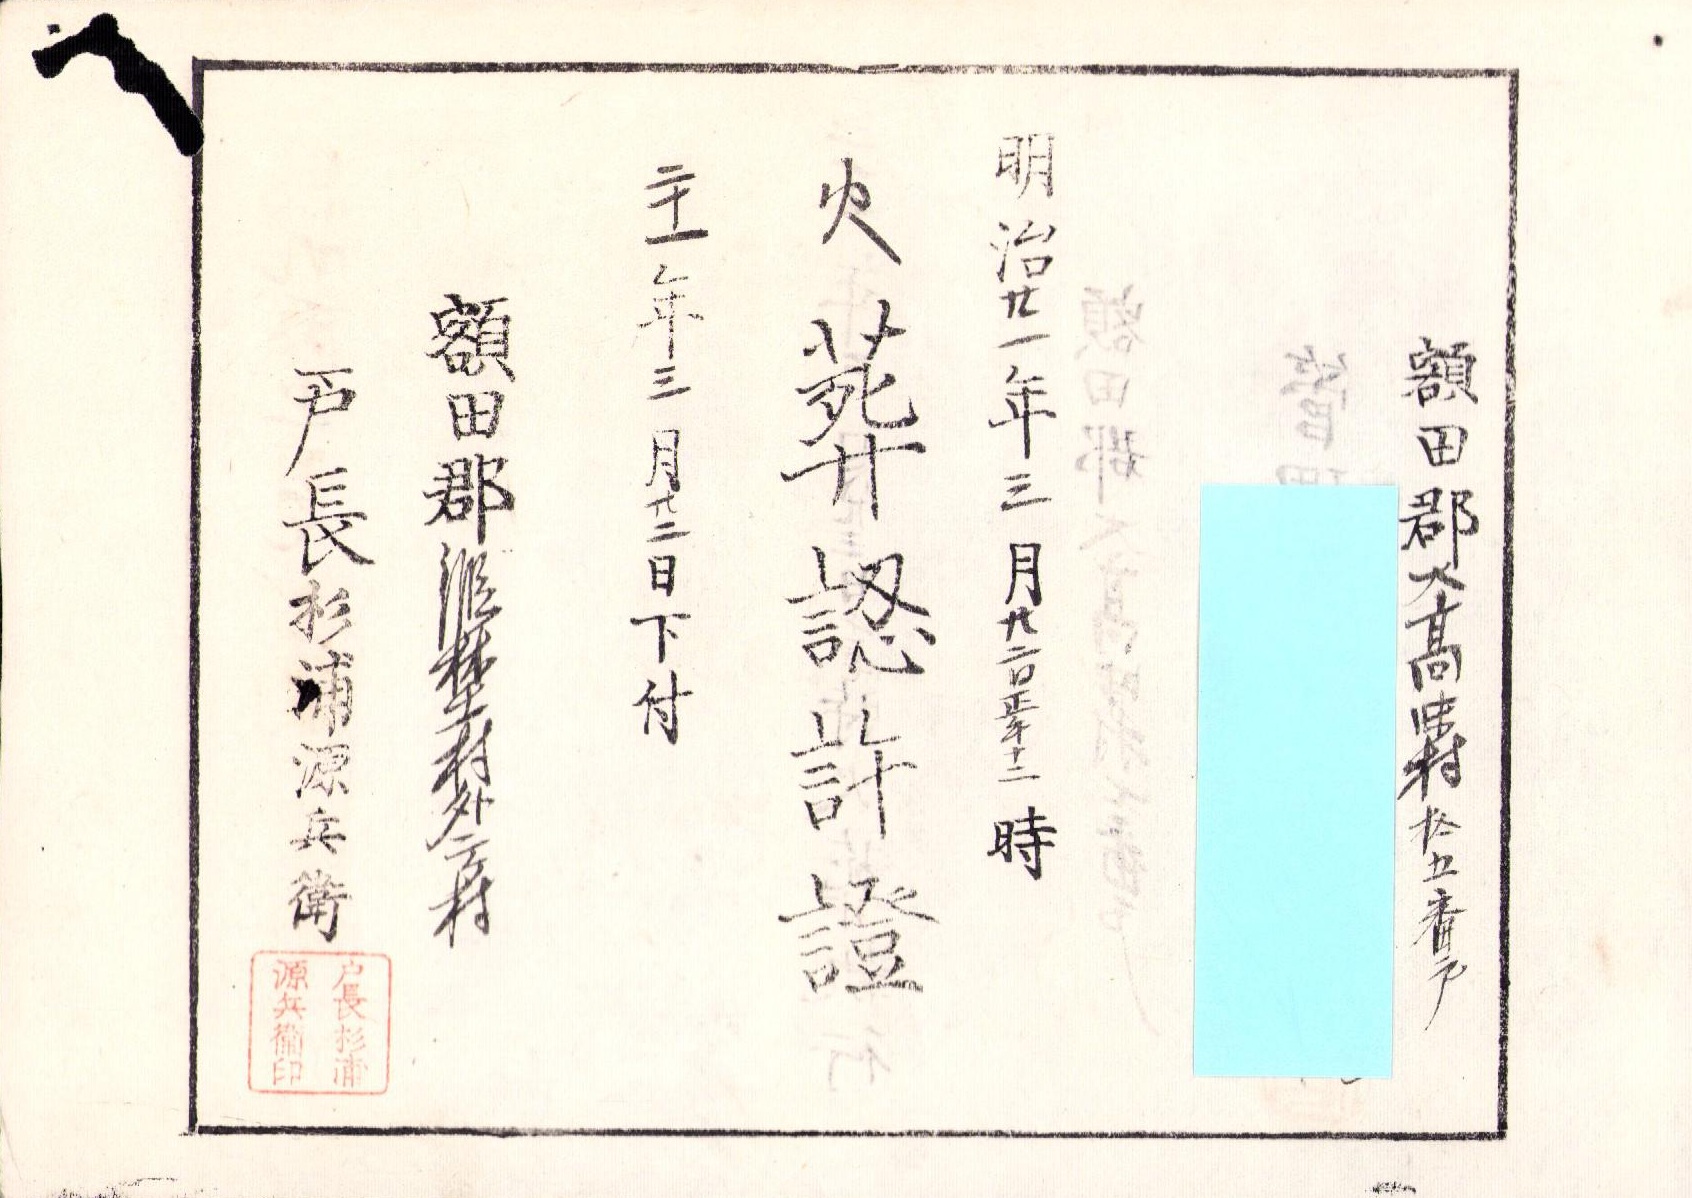 額田郡大高味村拾五番戸
明治廿一年三月廿二日正午十二時
火葬認許證
二十一年三月廿二日下付
額田郡 埜村外 村
戸長杉浦源兵衛
戸長杉浦
源兵衛印